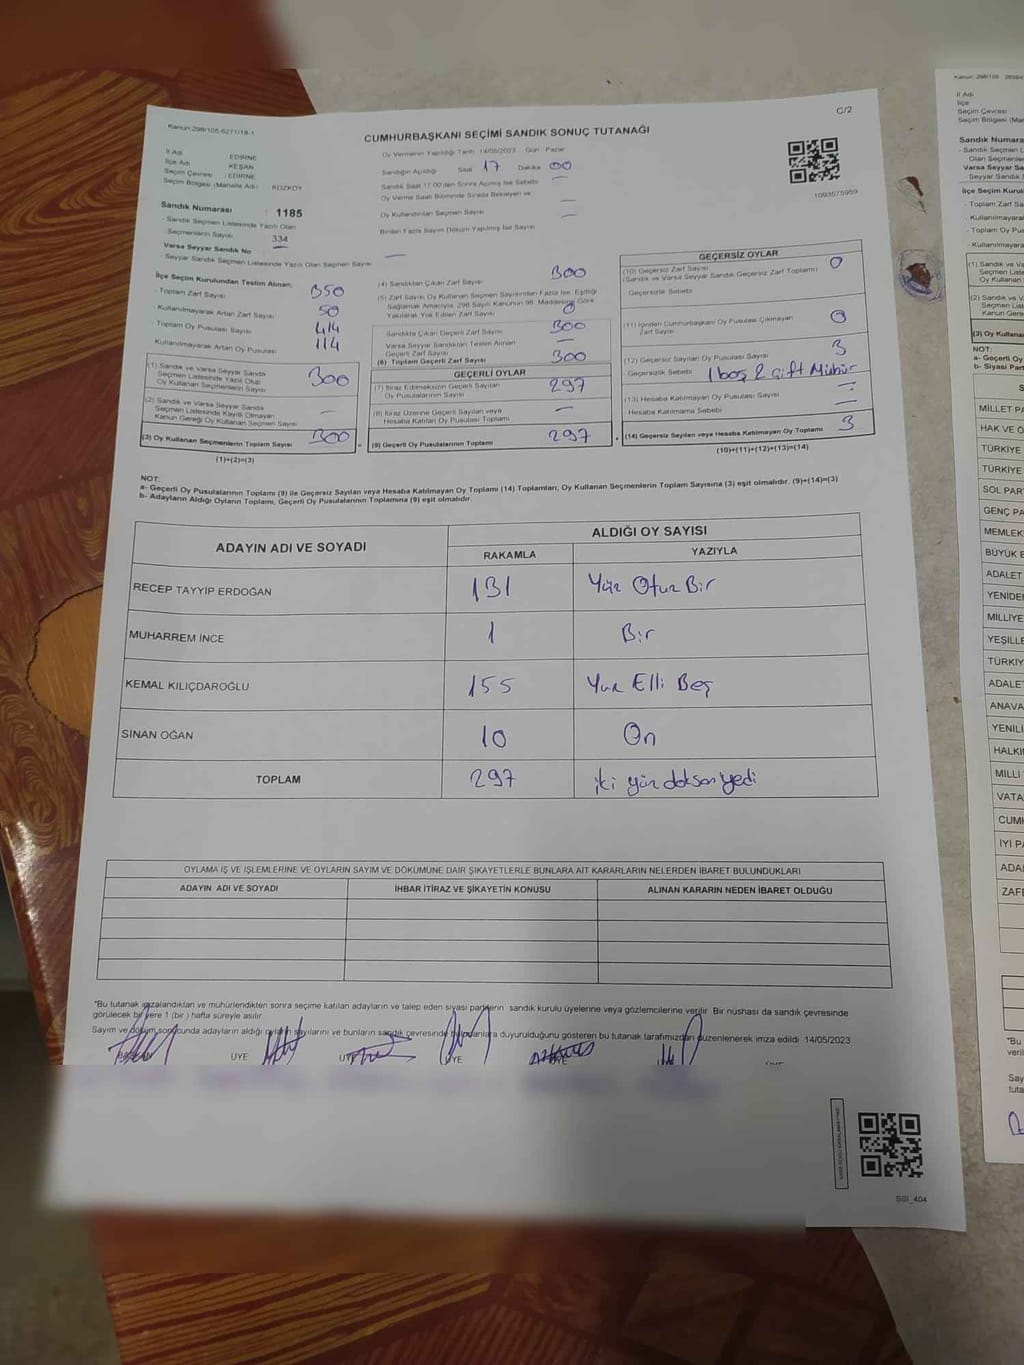 C/2
Kanun:298/105.6271/18-1
CUMHURBAŞKANI SEÇİMİ SANDIK SONUÇ TUTANAĞI
İl Adı EDİRNE
İlçe Adı KEŞAN
Seçim Çevresi : EDİRNE
Seçim Bölgesi (Mahalle Adı) KOZKÖY
Sandık Numarası : 1185
- Sandık Seçmen Listesinde Yazılı Olan
Seçmenlerin Sayısı 334
Varsa Seyyar Sandık No —
- Seyyar Sandık Seçmen Listesinde Yazılı Olan Seçmen Sayısı —
Oy Vermenin Yapıldığı Tarih 14/05/2023 Gün : Pazar
Sandığın Açıldığı Saat 17 Dakika 00
Sandık Saat 17:00'den Sonra Açılmış İse Sebebi —
Oy Verme Saati Bitiminde Sırada Bekleyen ve
Oy Kullandırılan Seçmen Sayısı —
Birden Fazla Sayım Döküm Yapılmış İse Sayısı —
1093575959
İlçe Seçim Kurulundan Teslim Alınan;
- Toplam Zarf Sayısı 350
Kullanılmayarak Artan Zarf Sayısı 50
Toplam Oy Pusulası Sayısı 414
Kullanılmayarak Artan Oy Pusulası 114
(1) Sandık ve Varsa Seyyar Sandık
Seçmen Listesinde Yazılı Olup
Oy Kullanan Seçmenlerin Sayısı 300
(2) Sandık ve Varsa Seyyar Sandık
Seçmen Listesinde Kayıtlı Olmayan
Kanun Gereği Oy Kullanan Seçmen Sayısı —
(3) Oy Kullanan Seçmenlerin Toplam Sayısı 300
(1)+(2)=(3)
(4) Sandıktan Çıkan Zarf Sayısı 300
(5) Zarf Sayısı Oy Kullanan Seçmen Sayısından Fazla İse, Eşitliği
Sağlamak Amacıyla, 298 Sayılı Kanunun 98. Maddesine Göre
Yakılarak Yok Edilen Zarf Sayısı 0
Sandıkta Çıkan Geçerli Zarf Sayısı 300
Varsa Seyyar Sandıktan Teslim Alınan
Geçerli Zarf Sayısı —
(6) Toplam Geçerli Zarf Sayısı 300
GEÇERLİ OYLAR
(7) İtiraz Edilmeksizin Geçerli Sayılan
Oy Pusulalarının Sayısı 297
(8) İtiraz Üzerine Geçerli Sayılan veya
Hesaba Katılan Oy Pusulası Toplamı —
(9) Geçerli Oy Pusulalarının Toplamı 297
GEÇERSİZ OYLAR
(10) Geçersiz Zarf Sayısı 0
(Sandık ve Varsa Seyyar Sandık Geçersiz Zarf Toplamı)
- Geçersizlik Sebebi
(11) İçinden Cumhurbaşkanı Oy Pusulası Çıkmayan
Zarf Sayısı 0
(12) Geçersiz Sayılan Oy Pusulası Sayısı 3
- Geçersizlik Sebebi 1 boş 2 Çift Mühür
(13) Hesaba Katılmayan Oy Pusulası Sayısı —
Hesaba Katılmama Sebebi —
(14) Geçersiz Sayılan veya Hesaba Katılmayan Oy Toplamı 3
(10)+(11)+(12)+(13)=(14)
NOT:
a- Geçerli Oy Pusulalarının Toplamı (9) ile Geçersiz Sayılan veya Hesaba Katılmayan Oy Toplamı (14) Toplamları, Oy Kullanan Seçmenlerin Toplam Sayısına (3) eşit olmalıdır. (9)+(14)=(3)
b- Adayların Aldığı Oyların Toplamı, Geçerli Oy Pusulalarının Toplamına (9) eşit olmalıdır.
ADAYIN ADI VE SOYADI ALDIĞI OY SAYISI
RAKAMLA YAZIYLA
RECEP TAYYİP ERDOĞAN 131 Yüz Otuz Bir
MUHARREM İNCE 1 Bir
KEMAL KILIÇDAROĞLU 155 Yüz Elli Beş
SİNAN OĞAN 10 On
TOPLAM 297 iki yüz doksan yedi
OYLAMA İŞ VE İŞLEMLERİNE VE OYLARIN SAYIM VE DÖKÜMÜNE DAİR ŞİKAYETLERLE BUNLARA AİT KARARLARIN NELERDEN İBARET BULUNDUKLARI
ADAYIN ADI VE SOYADI İHBAR İTİRAZ VE ŞİKAYETİN KONUSU ALINAN KARARIN NEDEN İBARET OLDUĞU
*Bu tutanak imzalandıktan ve mühürlendikten sonra seçime katılan adayların ve talep eden siyasi partilerin sandık kurulu üyelerine veya gözlemcilerine verilir. Bir nüshası da sandık çevresinde
görülecek bir yere 1 (bir) hafta süreyle asılır.
Sayım ve döküm sonucunda adayların aldığı oyların sayılarını ve bunların sandık çevresinde bulunanlara duyurulduğunu gösteren bu tutanak tarafımızdan düzenlenerek imza edildi. 14/05/2023
BAŞKAN ÜYE ÜYE ÜYE ÜYE ÜYE
SSI_404
Sandık Numarası
Varsa Seyyar Sandık
NOT:
MİLLET PA
HAK VE Ö
TÜRKİYE
TÜRKİYE
SOL PART
GENÇ PA
MEMLEK
BÜYÜK B
ADALET
YENİDEN
MİLLİYE
YEŞİLLE
TÜRKİY
ADALET
ANAVA
YENİLİ
HALKI
MİLLİ
VATA
CUMH
İYİ PA
ADA
ZAFE